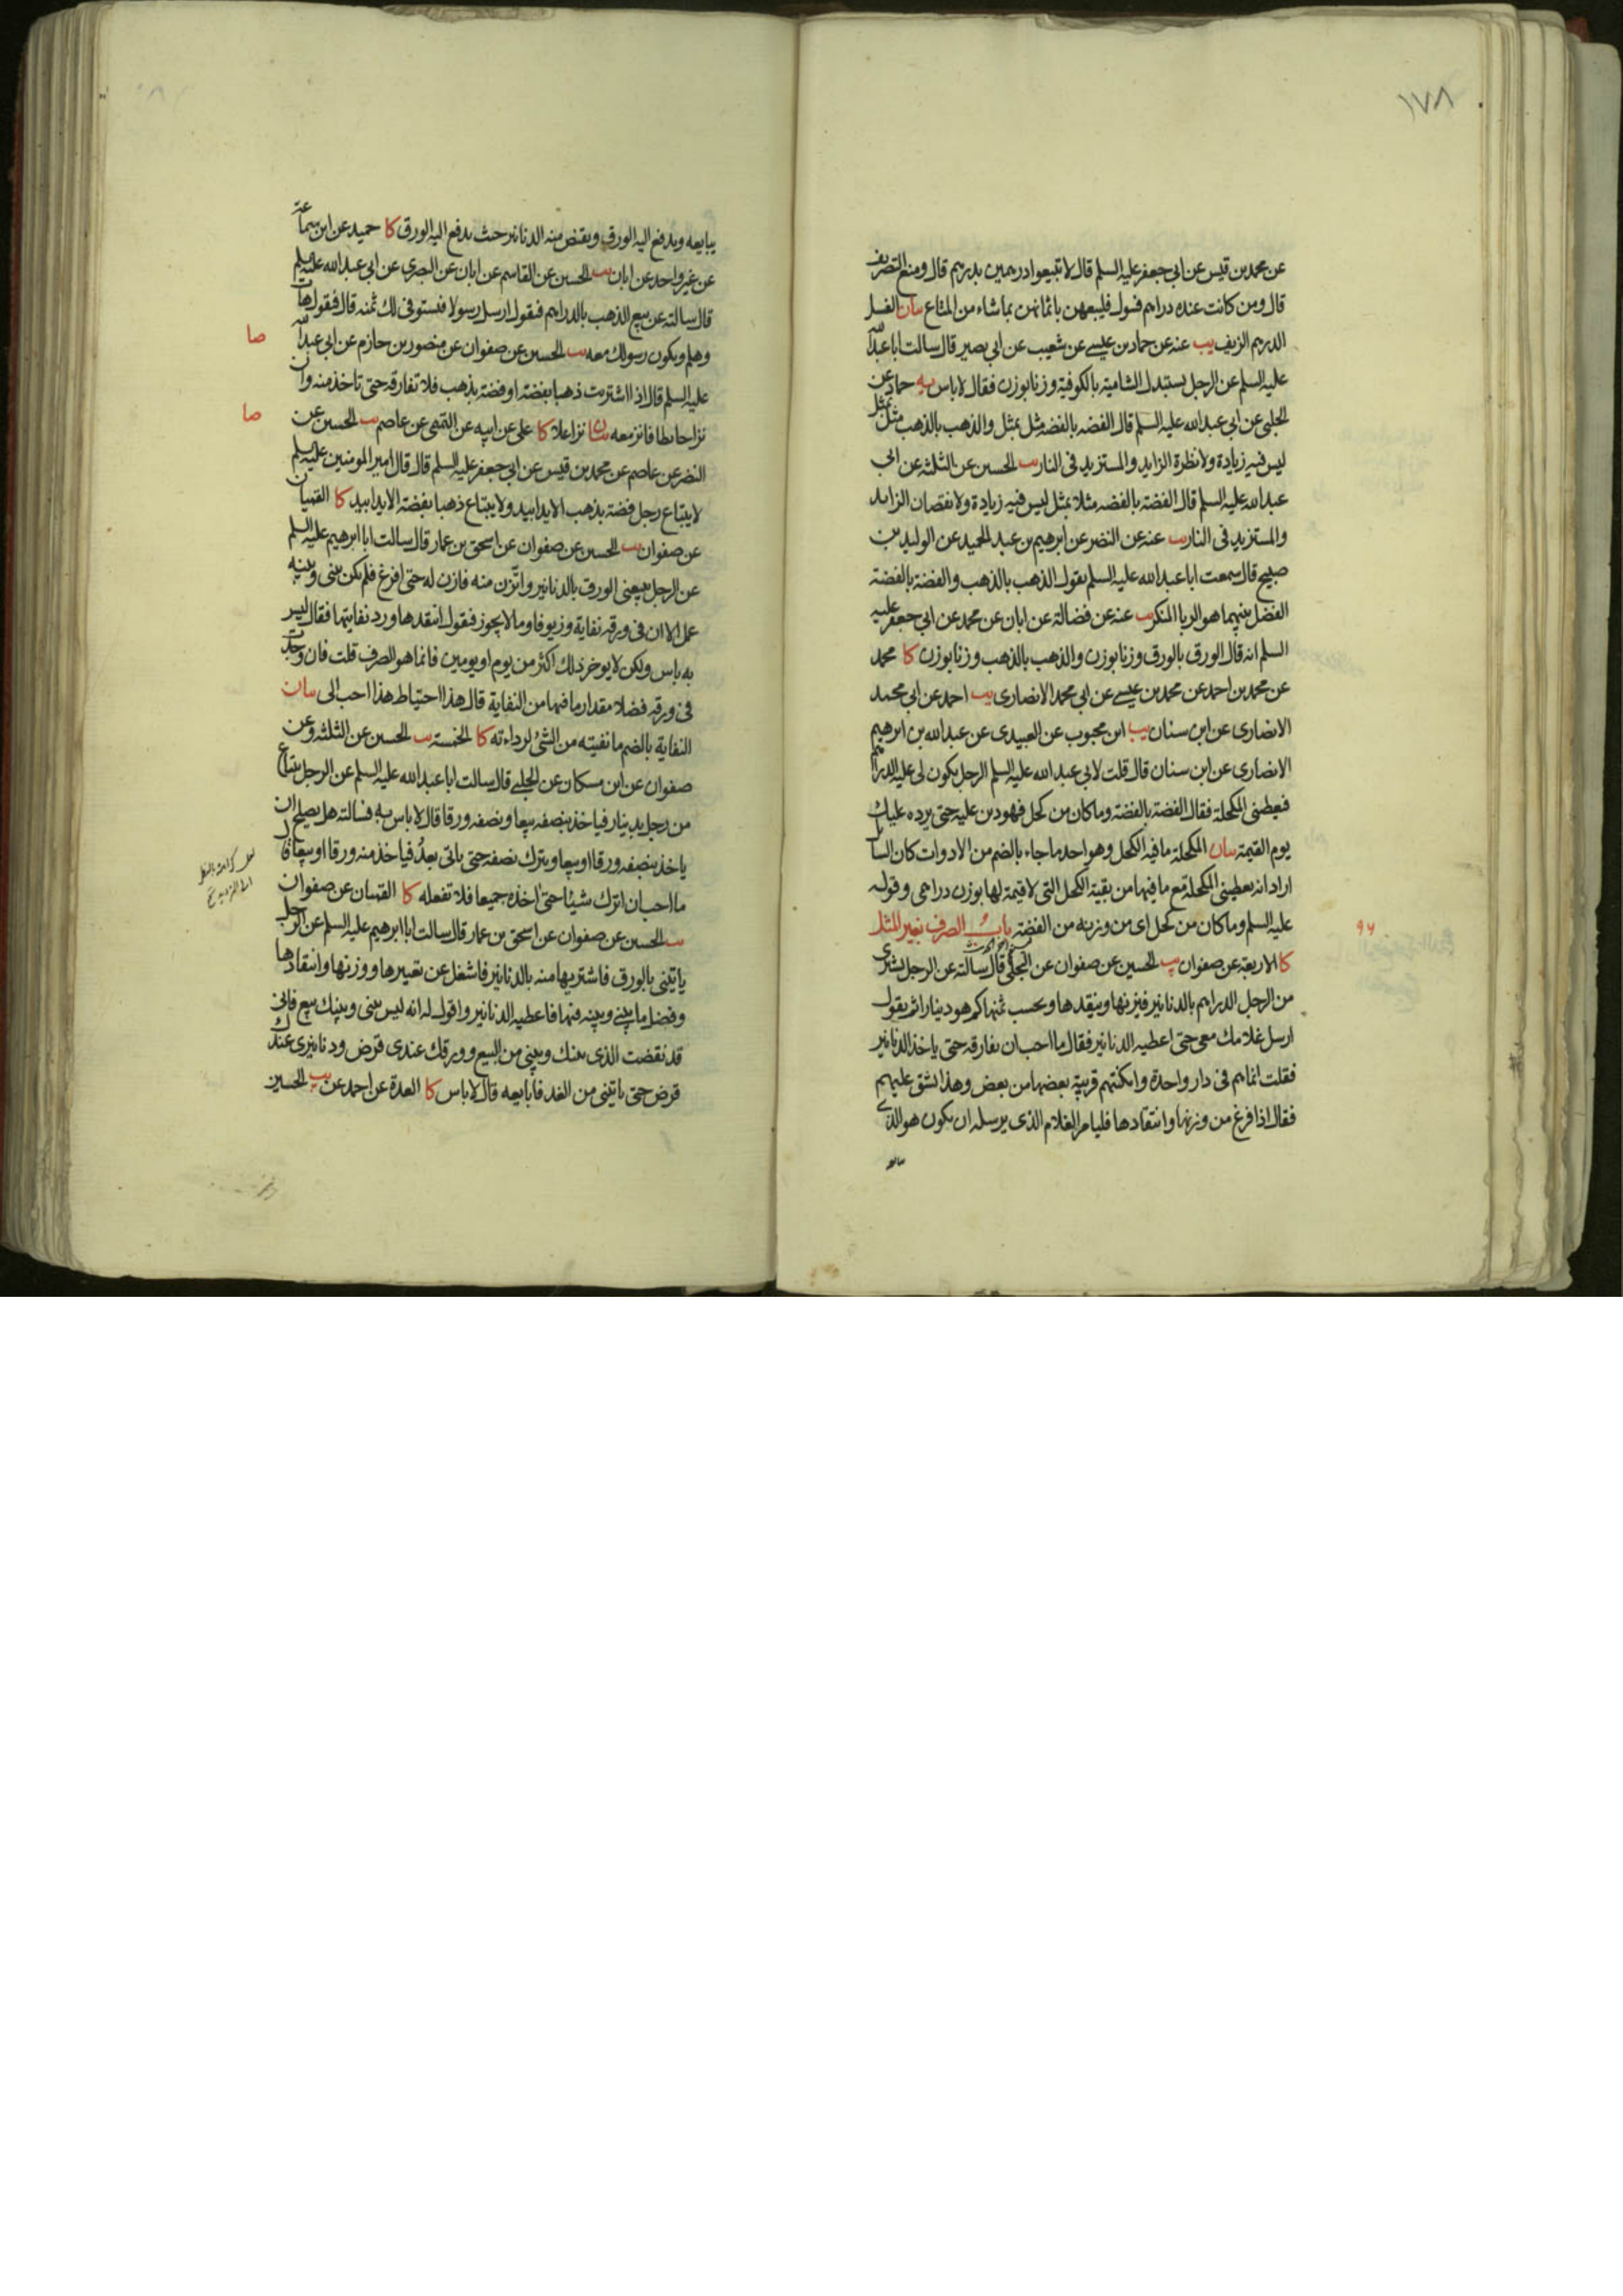 ١٧٨
عن محمد بن قيس عن ابى جعفر عليه السلم قال لا تبيعوا درهمين بدرهم قال ومنع التصريف
قال ومن كانت عنده دراهم فسول فليبعهن باثمانهن بما شاء من المتاع بيان الفسل
الدرهم الزيف يب عنه عن حماد بن عيسى عن شعيب عن ابى بصير قال سالت ابا عبد الله
عليه السلم عن الرجل يستبدل الشامية بالكوفية وزنا بوزن فقال لا باس يه حماد عن
الحلبى عن ابى عبد الله عليه السلم قال الفضه بالفضه مثل بمثل والذهب بالذهب مثل بمثل
ليس فيه زيادة ولا نظرة الزايد والمستزيد فى النار يب الحسين عن الثلثه عن ابى
عبد الله عليه السلم قال الفضة بالفضه مثلا بمثل ليس فيه زيادة ولا نقصان الزايد
والمستزيد فى النار يب عنه عن النضر عن ابرهيم بن عبد الحميد عن الوليد بن
صبيح قال سمعت ابا عبد الله عليه السلم يقول الذهب بالذهب والفضة بالفضة
الفضل بينهما هو الربا المنكر يب عنه عن فضالة عن ابان عن محمد عن ابى جعفر عليه
السلم انه قال الورق بالورق وزنا بوزن والذهب بالذهب وزنا بوزن كا محمد
عن محمد بن احمد عن محمد بن عيسى عن ابى محمد الانصارى يب احمد عن ابى محمد
الانصارى عن ابن سنان يب ابن محبوب عن العبيدى عن عبد الله بن ابرهيم
الانصارى عن ابن سنان قال قلت لابى عبد الله عليه السلم الرجل يكون لى عليه الدراهم
فيعطينى المكحلة فقال الفضة بالفضة وما كان من كحل فهو دين عليه حتى يرده عليك
يوم القيمة بيان المكحلة ما فيه الكحل وهو احد ما جاء بالضم من الادوات كان السائل
اراد انه يعطينى المكحلة مع ما فيها من بقية الكحل التى لا قيمة لها بوزن دراهمى وقوله
عليه السلم وما كان من كحل اى من وزنه من الفضة باب الصرف بغير المثل
٩٦
كا الاربعة عن صفوان يب الحسين عن صفوان عن البجلى قال سالته عن الرجل يشترى
من الرجل الدراهم بالدنانير فيزنها وينقدها ويحسب ثمنها كم هو دينارا ثم يقول
ارسل غلامك معى حتى اعطيه الدنانير فقال ما احب ان يفارقه حتى ياخذ الدنانير
فقلت انما هم فى دار واحدة وامكنتهم قريبة بعضها من بعض وهذا يشق عليهم
فقال اذا فرغ من وزنها وانتقادها فليامر الغلام الذى يرسله ان يكون هو الذى
يبايعه ويدفع اليه الورق ويقبض منه الدنانير حيث يدفع اليه الورق كا حميد عن ابن سماعة
عن غير واحد عن ابان يب الحسين عن القاسم عن ابان عن البصرى عن ابى عبد الله عليه السلم
قال سالته عن بيع الذهب بالدراهم فيقول ارسل رسولا فيستوفى لك ثمنه قال فيقول هات
وهلم ويكون رسولك معه يب الحسين عن صفوان عن منصور بن حازم عن ابى عبد الله
صا
عليه السلم قال اذا اشتريت ذهبا بفضة او فضة بذهب فلا تفارقه حتى تاخذ منه وان
نزا حايطا فانز معه بيان نزا علا كا على عن ابيه عن التميمى عن عاصم يب الحسين عن
صا
النضر عن عاصم عن محمد بن قيس عن ابى جعفر عليه السلم قال قال امير المومنين عليه السلم
لا يبتاع رجل فضة بذهب الا يدا بيد ولا يبتاع ذهبا بفضة الا يدا بيد كا القميان
عن صفوان يب الحسين عن صفوان عن اسحق بن عمار قال سالت ابا ابرهيم عليه السلم
عن الرجل يبيعنى الورق بالدنانير واتّزن منه فازن له حتى افرغ فلم يكن بينى وبينه
عمل الا ان فى ورقه نفاية وزيوفا وما لا يجوز فيقول انتقدها ورد نفايتها فقال ليس
به باس ولكن لا يوخر ذلك اكثر من يوم او يومين فانما هو الصرف قلت فان وجدت
فى ورقه فضلا مقدار ما فيها من النفاية قال هذا احتياط هذا احب الى بيان
النفاية بالضم ما نفيته من الشئ لرداءته كا الخمسة يب الحسين عن الثلثه وعن
صفوان عن ابن مسكان عن الحلبى قال سالت ابا عبد الله عليه السلم عن الرجل يبتاع
من رجل بدينار فياخذ بنصفه بيعا وبنصفه ورقا قال لا باس به فسالته هل يصلح ان
ياخذ بنصفه ورقا او بيعا ويترك نصفه حتى ياتى بعدُ فياخذ منه ورقا او بيعا قال
ما احب ان اترك شيئا حتى اخذه جميعا فلا تفعله كا القميان عن صفوان
يب الحسين عن صفوان عن اسحق بن عمار قال سالت ابا ابرهيم عليه السلم عن الرجل
ياتينى بالورق فاشتريها منه بالدنانير فاشغل عن تعييرها ووزنها وانتقادها
وفضل ما بينى وبينه فيها فاعطيه الدنانير واقول له انه ليس بينى وبينك بيع فانى
قد نقضت الذى بينك وبينى من البيع وورقك عندى قرض ودنانيرى عندك
قرض حتى ياتينى من الغد فابايعه قال لا باس كا العدة عن احمد عن يب الحسين